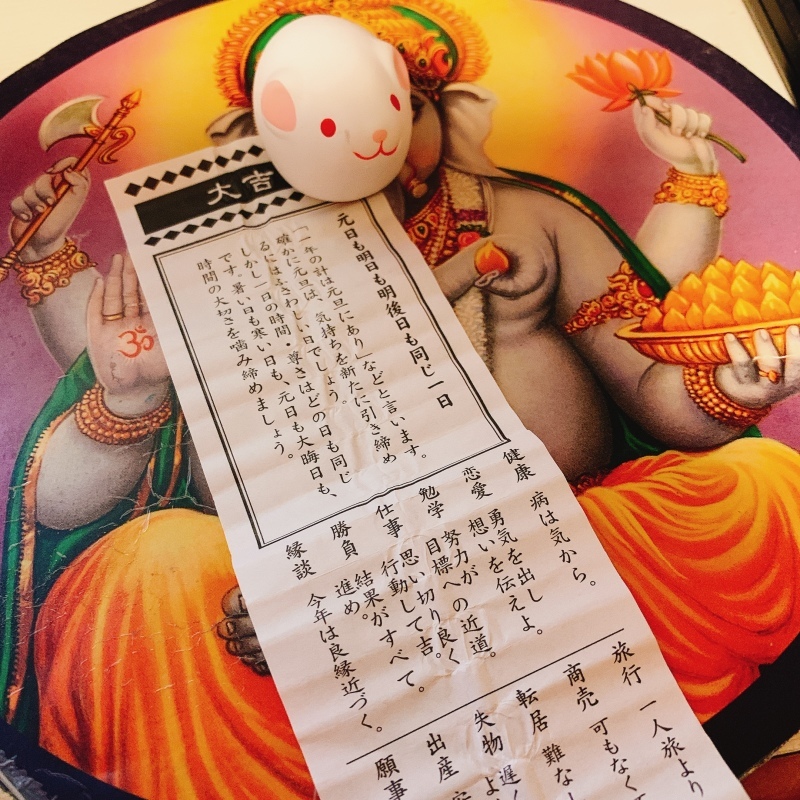 大吉
元日も明日も明後日も同じ一日
「一年の計は元旦にあり」などと言います。
確かに元旦は、気持ちを新たに引き締め
るにはふさわしい日でしょう。
しかし一日の時間・尊さはどの日も同じ
です。暑い日も寒い日も、元日も大晦日も、
時間の大切さを噛み締めましょう。
健康 病は気から。
恋愛 勇気を出し
想いを伝えよ。
勉学 努力が
目標への近道。
仕事 思い切り良く
行動して吉。
勝負 結果がすべて。
進め。
縁談 今年は良縁近づく。
旅行 一人旅より
商売 可もなく
転居 難な
失物 遅く
出産
願事
ॐ